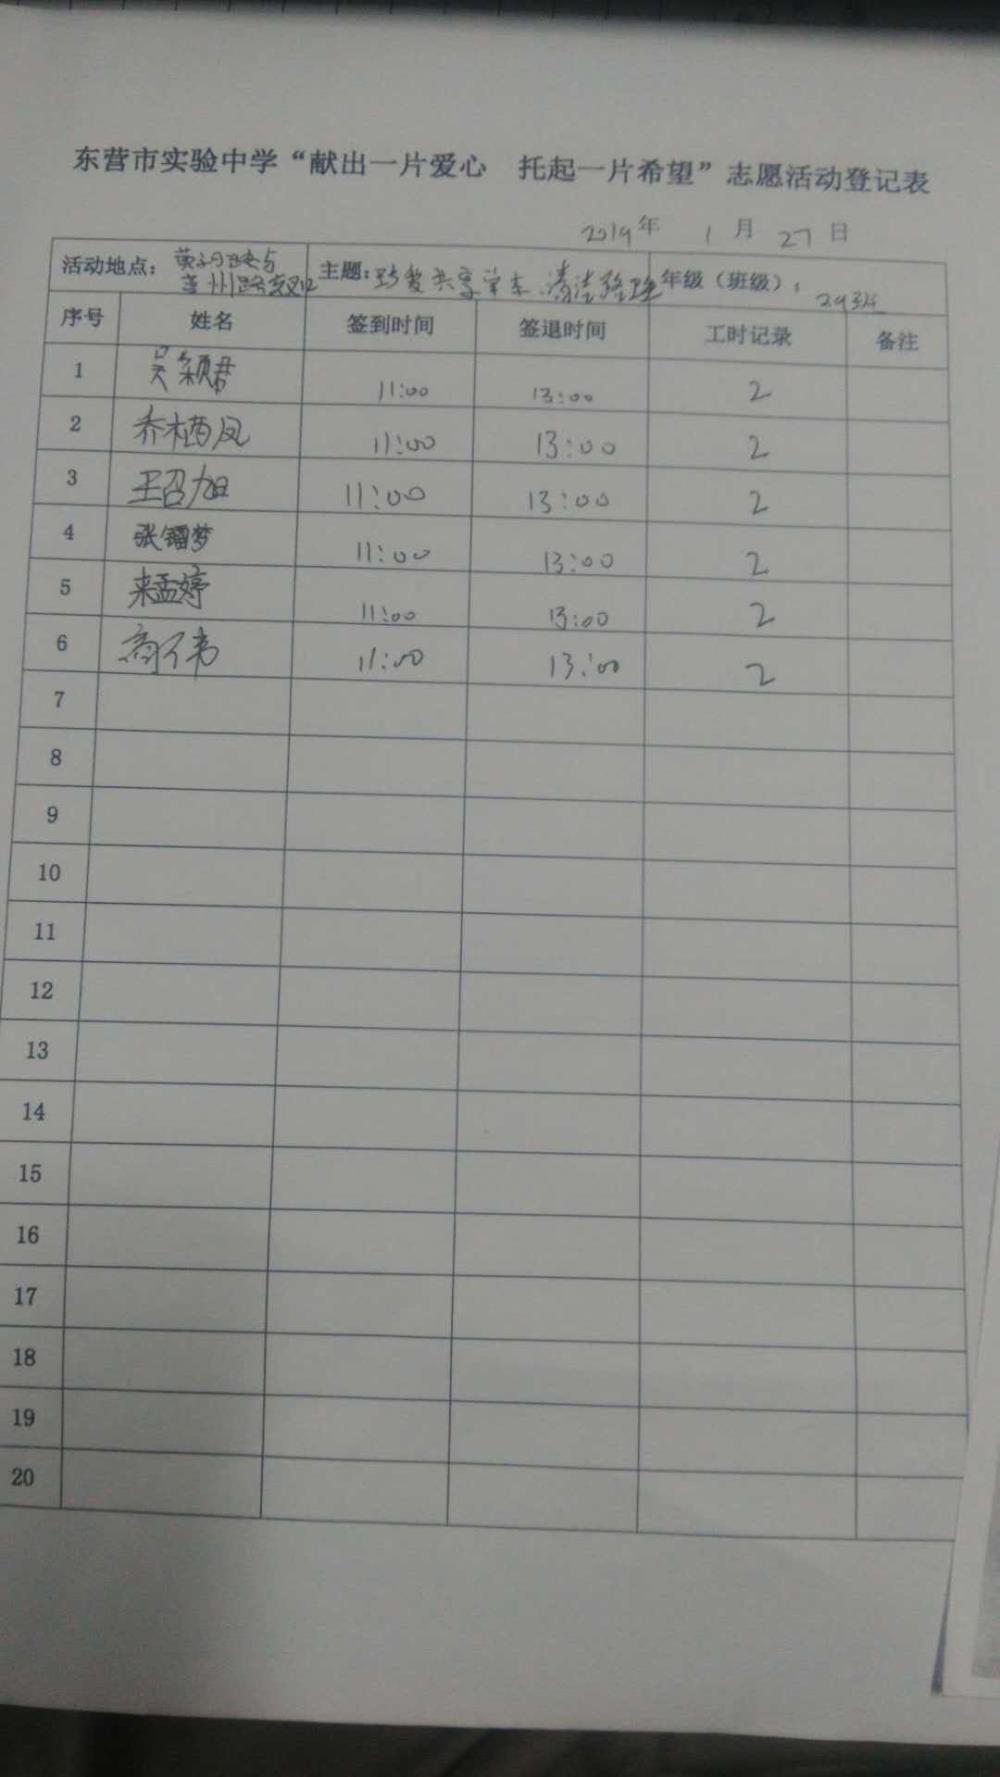 东营市实验中学“献出一片爱心 托起一片希望”志愿活动登记表
2019年 1月 27日
活动地点：黄河路与 主题：珍爱共享单车.清洁整理 年级（班级）：
州路交叉口
序号 姓名 签到时间 签退时间 工时记录 备注
1 吴颖君 11:00 13:00 2
2 乔栖凤 11:00 13:00 2
3 王召旭 11:00 13:00 2
4 张镏梦 11:00 13:00 2
5 来孟婷 11:00 13:00 2
6 11:00 13:00 2
7
8
9
10
11
12
13
14
15
16
17
18
19
20